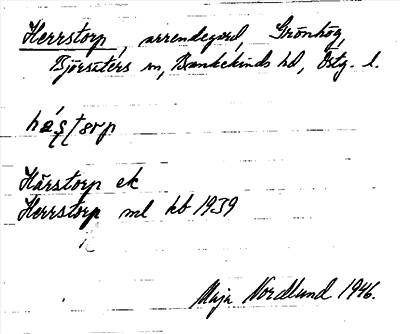 Herrstorp, arrendegård, Grönhög,
Björsäters sn, Bankekinds hd, Östg. l.
Härstorp ek
Herrstorp ml kb 1939
Maja Nordlund 1946.